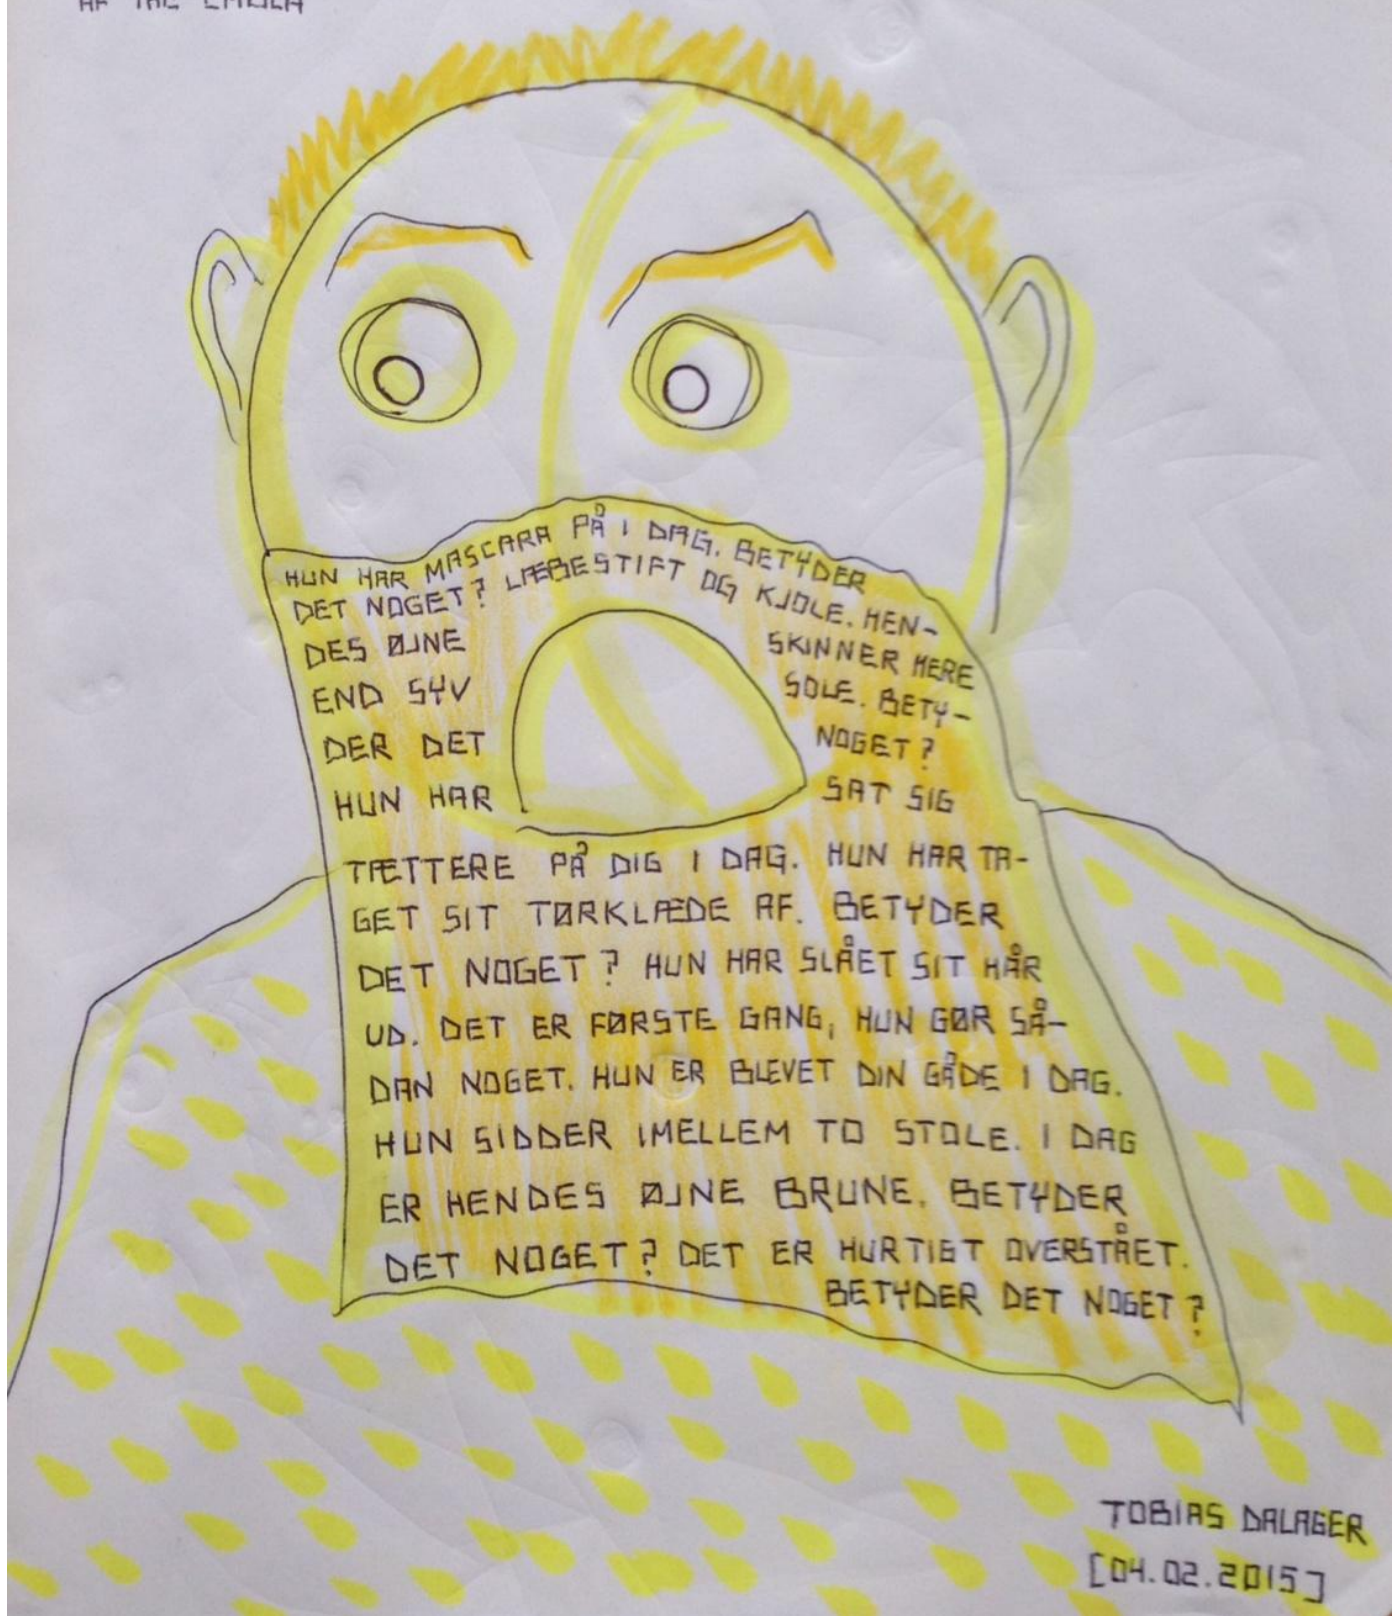 HUN HAR MASCARA PÅ I DAG. BETYDER
DET NOGET? LÆBESTIFT OG KJOLE. HEN-
DES ØJNE SKINNER MERE
END SYV SOLE. BETY-
DER DET NOGET?
HUN HAR SAT SIG
TÆTTERE PÅ DIG I DAG. HUN HAR TA-
GET SIT TØRKLÆDE AF. BETYDER
DET NOGET? HUN HAR SLÅET SIT HÅR
UD. DET ER FØRSTE GANG, HUN GØR SÅ-
DAN NOGET. HUN ER BLEVET DIN GÅDE I DAG.
HUN SIDDER IMELLEM TO STOLE. I DAG
ER HENDES ØJNE BRUNE. BETYDER
DET NOGET? DET ER HURTIGT OVERSTÅET.
BETYDER DET NOGET?
TOBIAS DALAGER
[04.02.2015]